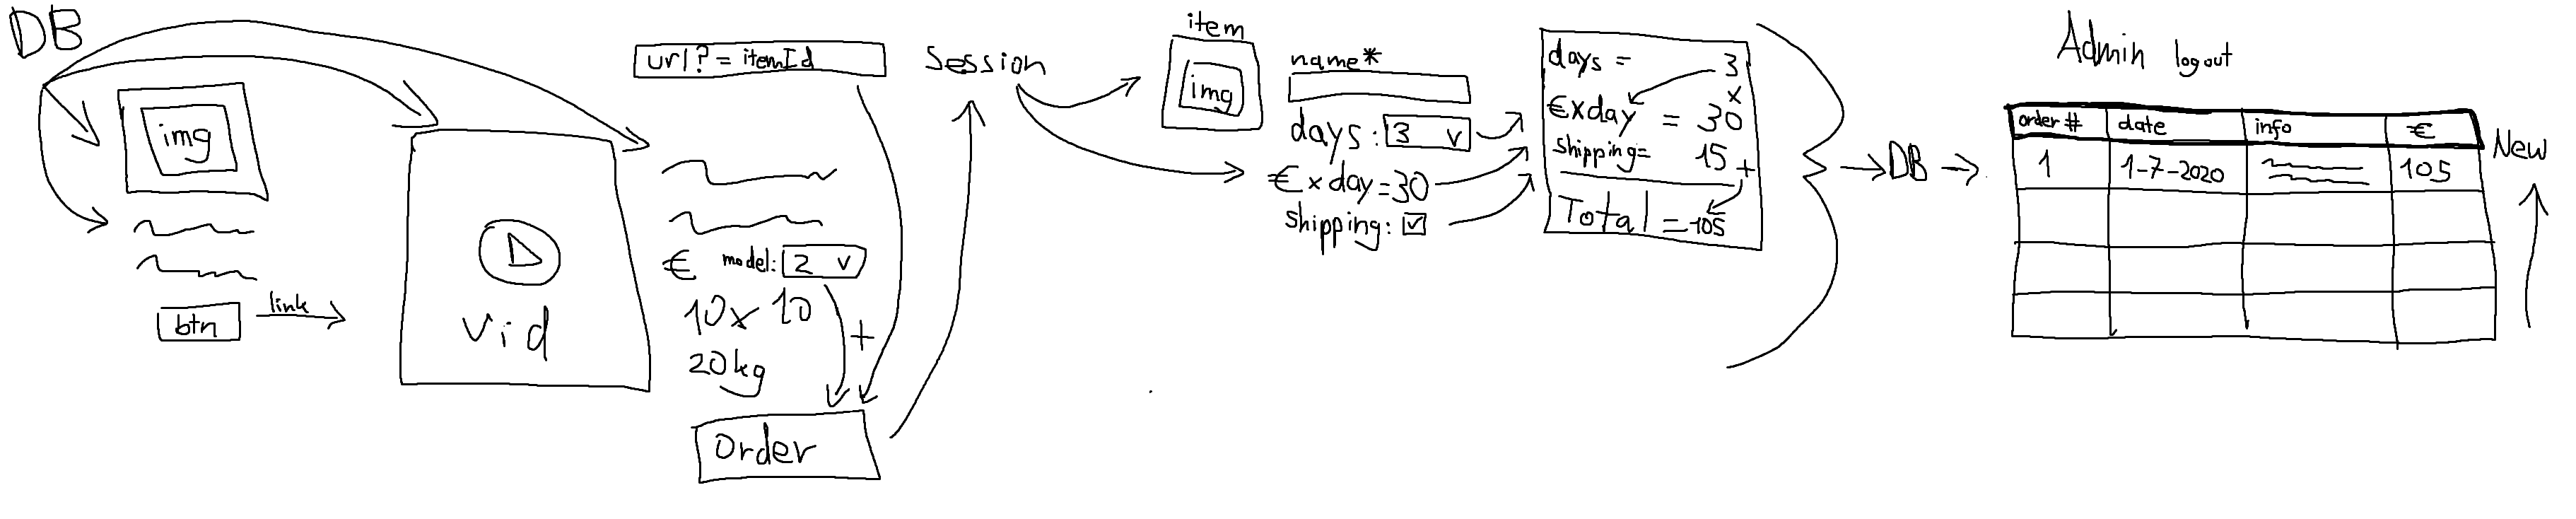 DB
img
btn
link
vid
url? = itemId
€ model: 2 v
10x10
20kg
+
Order
Session
item
img
name*
days: 3 v
€xday=30
shipping: v
days = 3
x
€xday = 30
shipping= 15
+
Total =105
DB
Admin logout
order# date info €
1 1-7-2020 105
New